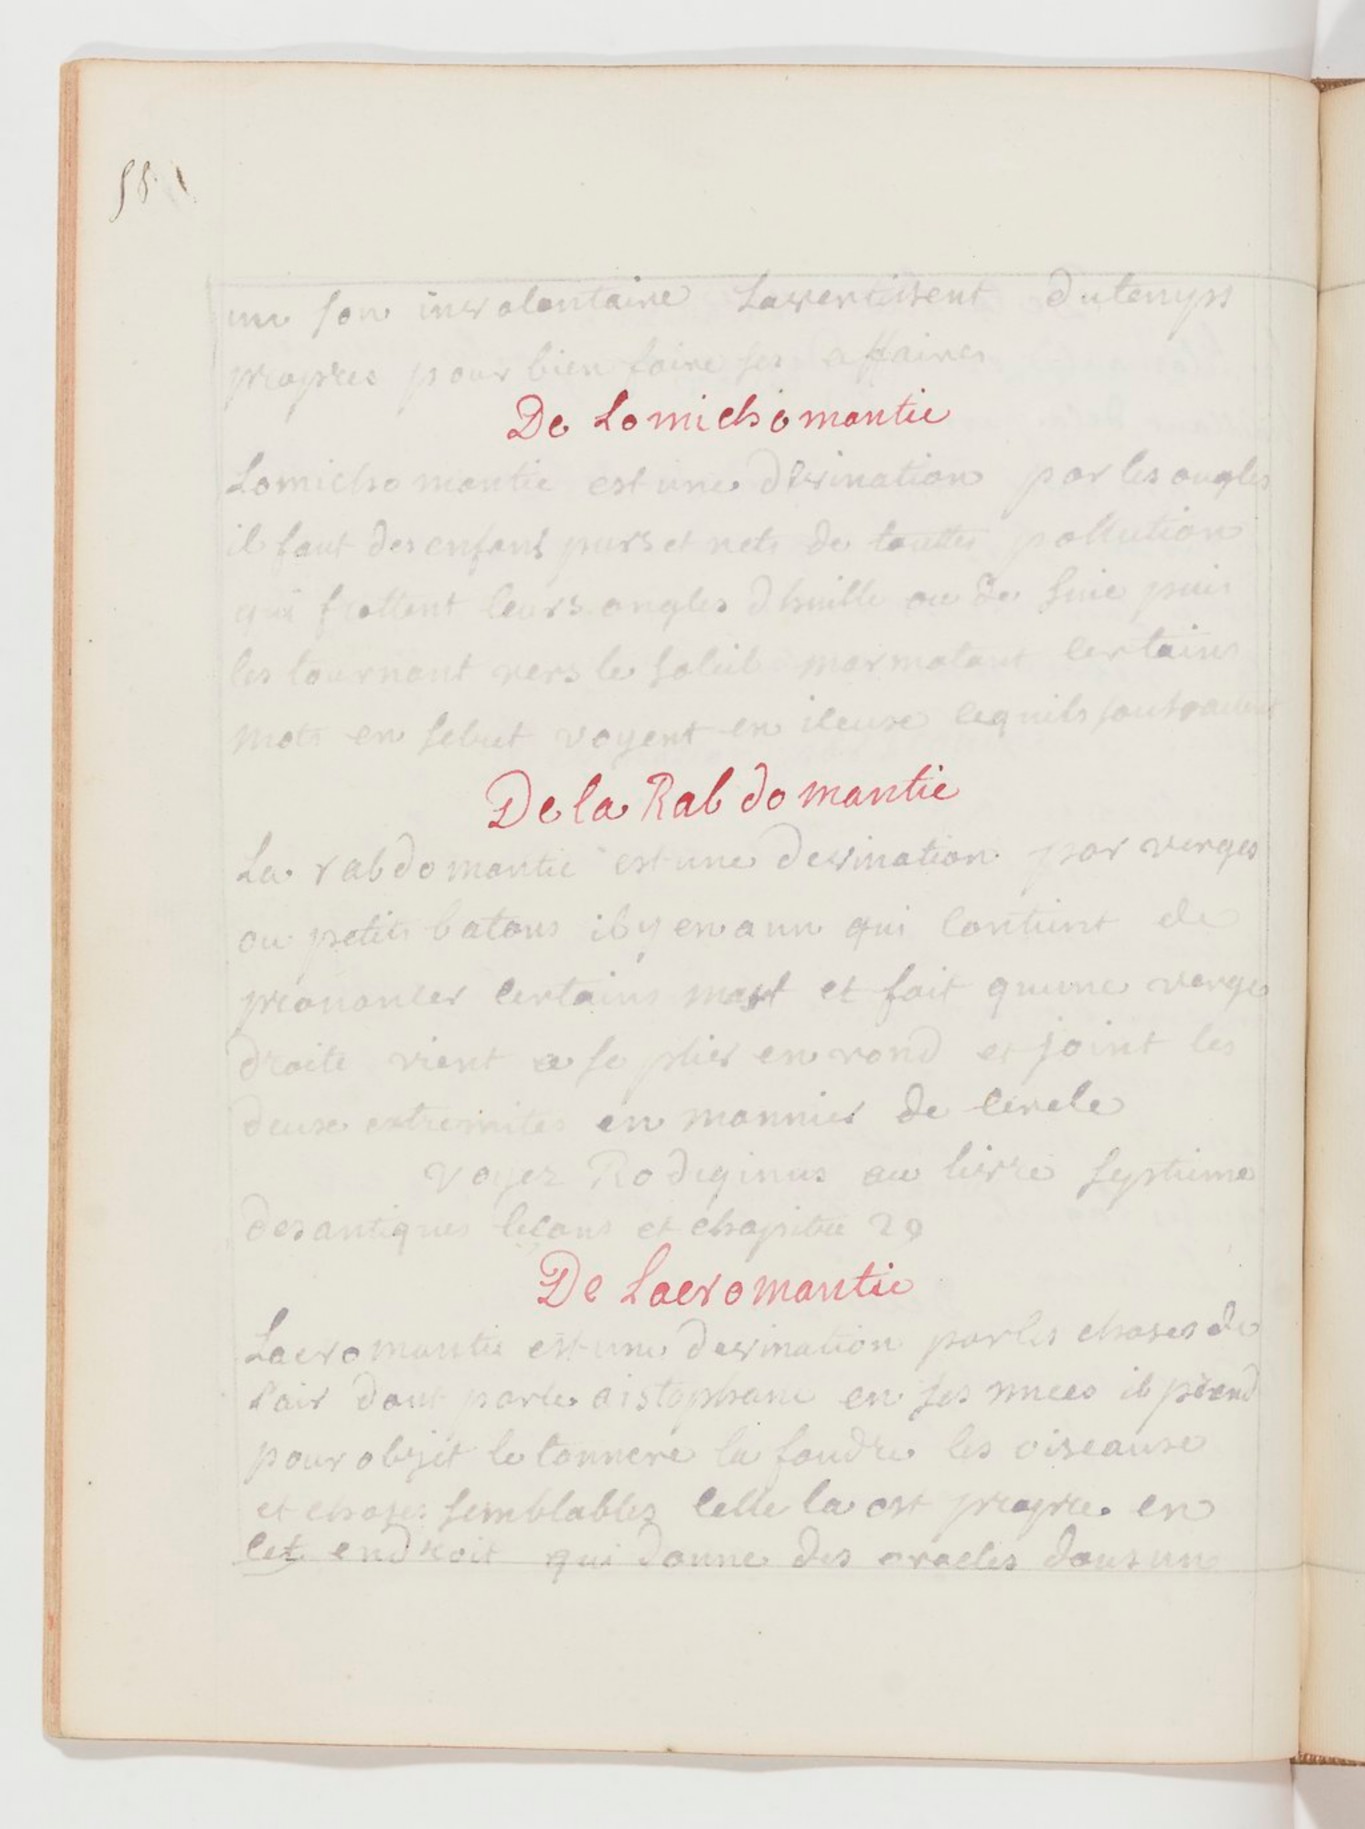 58
un son involontaire Lavertissent du temps
propres pour bien faire ses affaires
De Lomichomantie
Lomichomantie est une divination par les ongles
il faut des enfans purs et nets de touttes pollution
qui frottent leurs ongles dhuille ou de suie puis
les tournant vers le soleil marmotant certains
mots en voyent en iceux ce quils
De la Rabdomantie
La rabdomantie est une devination par verges
ou petits batons il y en a un qui contient de
prononcer certains et fait quune verge
droite vient a se plier en rond et joint les
deux extremites en mannier de cercle
Voyez Rodiginus au livre septieme
des antiques lecons et chapitre 29
De Laeromantie
Laeromantie est une devination par les choses de
l'air dont parle aistophane en ses nuees il prend
pour objet le tonnere la foudre les oiseaux
et choses semblables celle la est propre en
cet endroit qui donne des oracles dans un